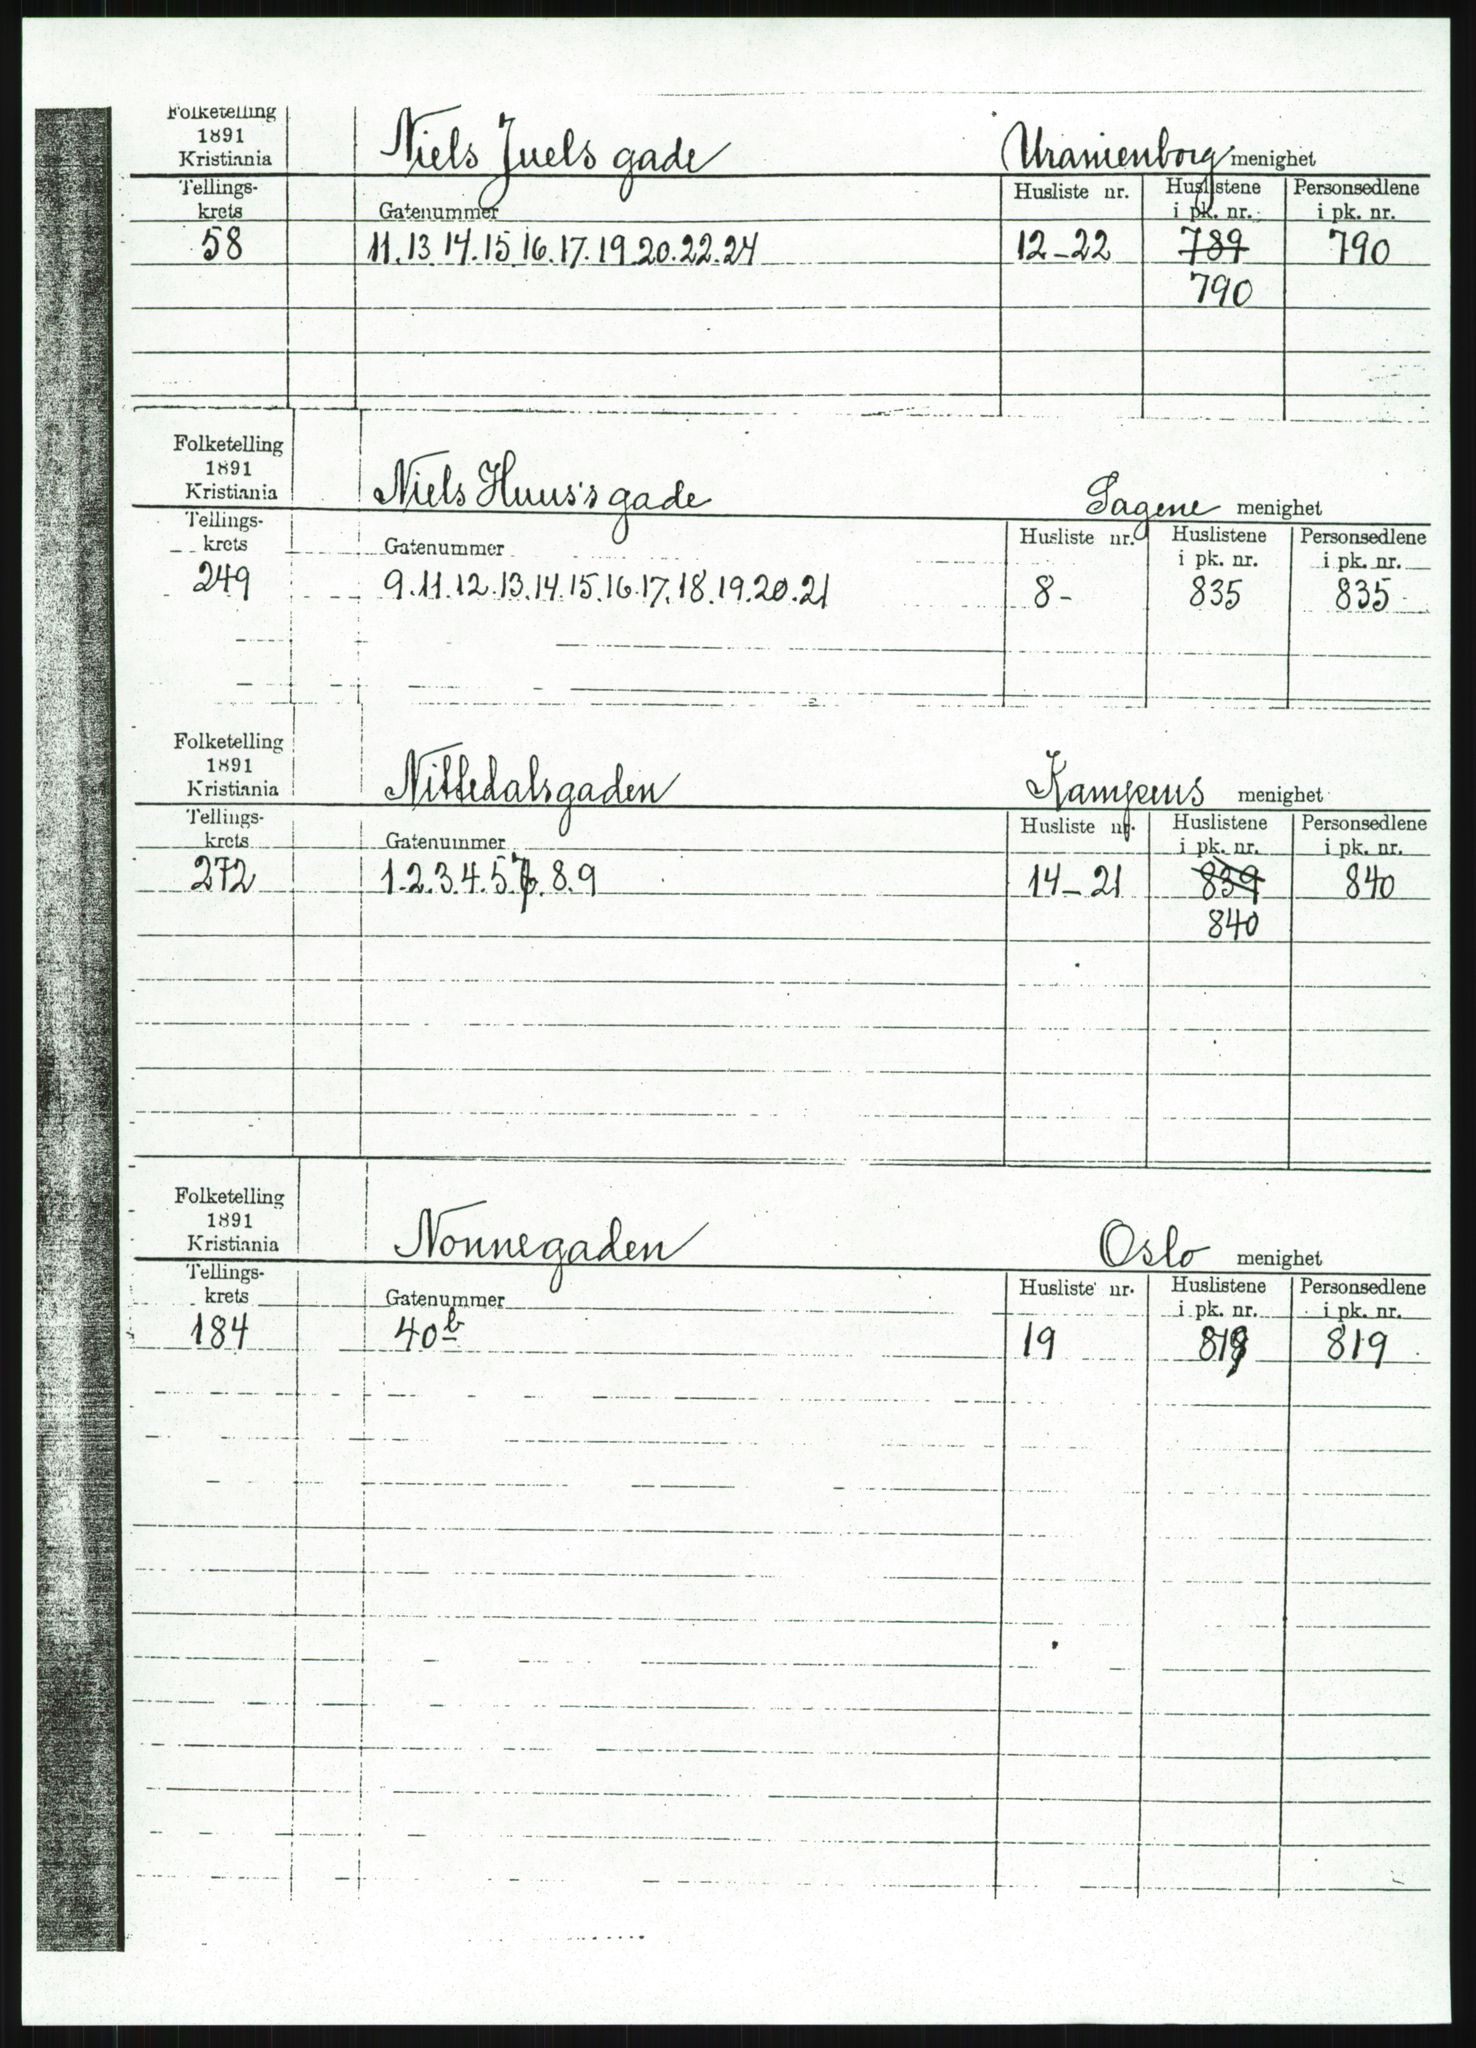 Folketelling
1891
Kristiania Niels Juels gade Uranienborg menighet
Tellings- Husliste nr. Huslistene Personsedlene
krets Gatenummer i pk. nr. i pk. nr.
58 11.13.14.15.16.17.19.20.22.24 12-22 789 790
790
Folketelling
1891
Kristiania Niels Huus's gade Sagene menighet
Tellings- Husliste nr. Huslistene Personsedlene
krets Gatenummer i pk. nr. i pk. nr.
249 9.11.12.13.14.15.16.17.18.19.20.21 8- 835 835
Folketelling
1891
Kristiania Nittedalsgaden Kampens menighet
Tellings- Husliste nr. Huslistene Personsedlene
krets Gatenummer i pk. nr. i pk. nr.
272 1.2.3.4.5.7.8.9 14-21 839 840
840
Folketelling
1891
Kristiania Nonnegaden Oslo menighet
Tellings- Husliste nr. Huslistene Personsedlene
krets Gatenummer i pk. nr. i pk. nr.
184 40b 19 819 819